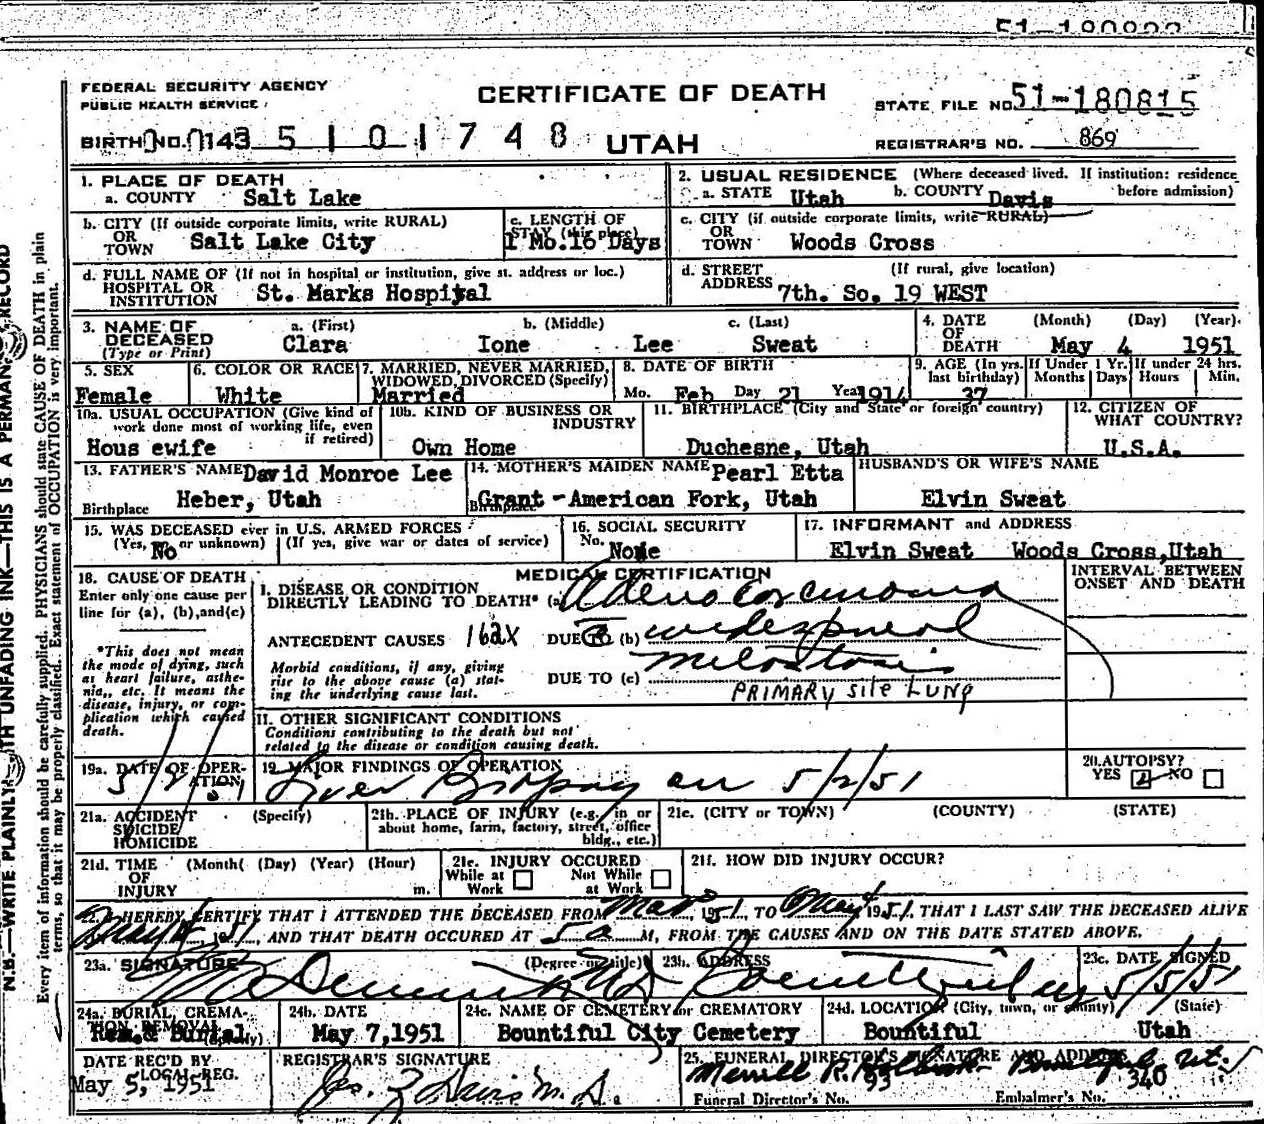 51-180822
FEDERAL SECURITY AGENCY
PUBLIC HEALTH SERVICE
CERTIFICATE OF DEATH
STATE FILE NO. 51-180815
BIRTH NO. 143 5101748
UTAH
REGISTRAR'S NO. 869
N.B.—WRITE PLAINLY WITH UNFADING INK—THIS IS A PERMANENT RECORD
Every item of information should be carefully supplied. PHYSICIANS should state CAUSE OF DEATH in plain
terms, so that it may be properly classified. Exact statement of OCCUPATION is very important.
1. PLACE OF DEATH
a. COUNTY Salt Lake
2. USUAL RESIDENCE (Where deceased lived. If institution: residence
before admission)
a. STATE Utah b. COUNTY Davis
b. CITY (If outside corporate limits, write RURAL)
OR
TOWN Salt Lake City
c. LENGTH OF
STAY (this place)
1 Mo.16 Days
c. CITY (if outside corporate limits, write RURAL)
OR
TOWN Woods Cross
d. FULL NAME OF (If not in hospital or institution, give st. address or loc.)
HOSPITAL OR
INSTITUTION St. Marks Hospital
d. STREET (If rural, give location)
ADDRESS 7th. So. 19 WEST
3. NAME OF a. (First) b. (Middle) c. (Last)
DECEASED Clara Ione Lee Sweat
(Type or Print)
4. DATE (Month) (Day) (Year)
OF
DEATH May 4 1951
5. SEX
Female
6. COLOR OR RACE
White
7. MARRIED, NEVER MARRIED,
WIDOWED, DIVORCED (Specify)
Married
8. DATE OF BIRTH
Mo. Feb Day 21 Year 1914
9. AGE (In yrs. last birthday) 37
If Under 1 Yr. Months Days
If under 24 hrs. Hours Min.
10a. USUAL OCCUPATION (Give kind of
work done most of working life, even
if retired)
Hous ewife
10b. KIND OF BUSINESS OR
INDUSTRY
Own Home
11. BIRTHPLACE (City and State or foreign country)
Duchesne, Utah
12. CITIZEN OF
WHAT COUNTRY?
U.S.A.
13. FATHER'S NAME David Monroe Lee
Birthplace Heber, Utah
14. MOTHER'S MAIDEN NAME Pearl Etta
Birthplace Grant - American Fork, Utah
HUSBAND'S OR WIFE'S NAME
Elvin Sweat
15. WAS DECEASED ever in U.S. ARMED FORCES
(Yes, No or unknown) (If yes, give war or dates of service)
No
16. SOCIAL SECURITY
No. None
17. INFORMANT and ADDRESS
Elvin Sweat Woods Cross, Utah
18. CAUSE OF DEATH
Enter only one cause per
line for (a), (b), and (c)
*This does not mean
the mode of dying, such
as heart failure, asthe-
nia, etc. It means the
disease, injury, or com-
plication which caused
death.
MEDICAL CERTIFICATION
INTERVAL BETWEEN
ONSET AND DEATH
I. DISEASE OR CONDITION
DIRECTLY LEADING TO DEATH* (a) Adenocarcinoma
ANTECEDENT CAUSES 162X DUE TO (b) widespread
Morbid conditions, if any, giving
rise to the above cause (a) stat-
ing the underlying cause last.
DUE TO (c)
PRIMARY SITE LUNG
II. OTHER SIGNIFICANT CONDITIONS
Conditions contributing to the death but not
related to the disease or condition causing death.
19a. DATE OF OPER-
ATION
19. MAJOR FINDINGS OF OPERATION
Liver Biopsy on 5/2/51
20. AUTOPSY?
YES NO
21a. ACCIDENT (Specify)
SUICIDE
HOMICIDE
21b. PLACE OF INJURY (e.g., in or
about home, farm, factory, street, office
bldg., etc.)
21c. (CITY or TOWN) (COUNTY) (STATE)
21d. TIME (Month) (Day) (Year) (Hour)
OF
INJURY m.
21e. INJURY OCCURED
While at Work Not While at Work
21f. HOW DID INJURY OCCUR?
22. I HEREBY CERTIFY THAT I ATTENDED THE DECEASED FROM Mar 5, 1951, TO May 4 1951, THAT I LAST SAW THE DECEASED ALIVE
May 4 1951, AND THAT DEATH OCCURED AT 5 a M, FROM THE CAUSES AND ON THE DATE STATED ABOVE.
23a. SIGNATURE (Degree or title) 23b. ADDRESS 23c. DATE SIGNED
5/5/51
24a. BURIAL, CREMA-
TION, REMOVAL (Specify)
Rem.& Burial
24b. DATE
May 7,1951
24c. NAME OF CEMETERY or CREMATORY
Bountiful City Cemetery
24d. LOCATION (City, town, or county) (State)
Bountiful Utah
DATE REC'D BY
LOCAL REG.
May 5, 1951
REGISTRAR'S SIGNATURE
25. FUNERAL DIRECTOR'S SIGNATURE AND ADDRESS
Merrill R.
93 340
Funeral Director's No. Embalmer's No.